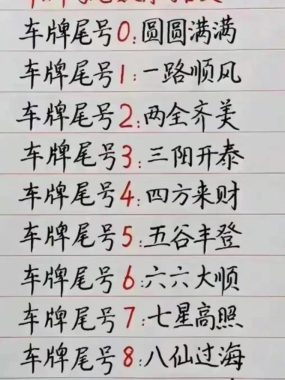 车牌尾号0:圆圆满满
车牌尾号1:一路顺风
车牌尾号2:两全齐美
车牌尾号3:三阳开泰
车牌尾号4:四方来财
车牌尾号5:五谷丰登
车牌尾号6:六六大顺
车牌尾号7:七星高照
车牌尾号8:八仙过海